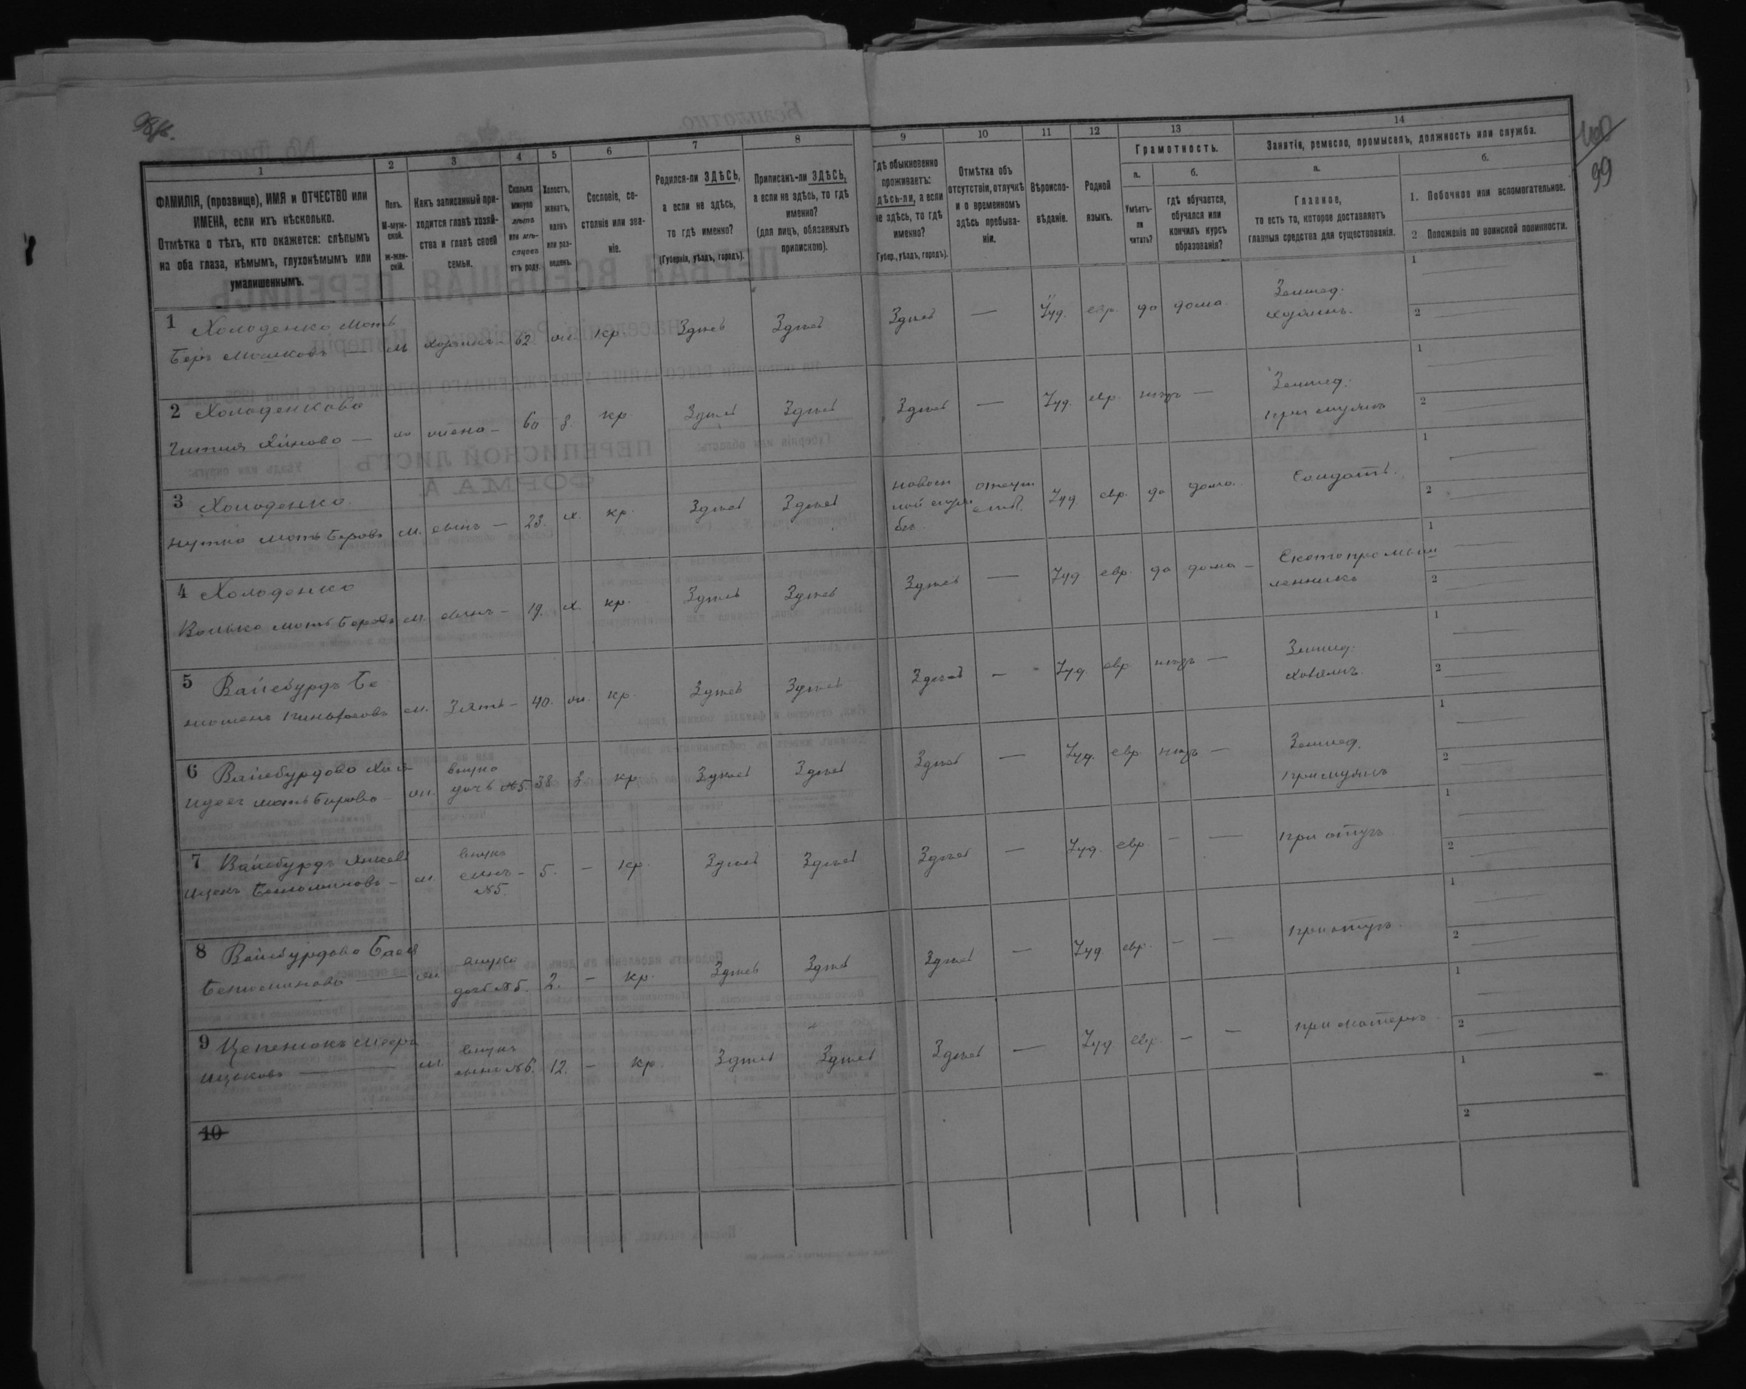 100
99
1
2
3
4
5
6
7
8
9
10
11
12
13
14
ФАМИЛІЯ, (прозвище), ИМЯ и ОТЧЕСТВО или
ИМЕНА, если ихъ нѣсколько.
Отмѣтка о тѣхъ, кто окажется: слѣпымъ
на оба глаза, нѣмымъ, глухонѣмымъ или
умалишеннымъ.
Полъ.
М-муж-
ской.
ж-жен-
скій.
Какъ записанный при-
ходится главѣ хозяй-
ства и главѣ своей
семьи.
Сколько
минуло
лѣтъ
или мѣ-
сяцевъ
отъ роду.
Холостъ,
женатъ,
вдовъ
или раз-
веденъ.
Сословіе, со-
стояніе или зва-
ніе.
Родился-ли ЗДѢСЬ,
а если не здѣсь,
то гдѣ именно?
(Губернія, уѣздъ, городъ).
Приписанъ-ли ЗДѢСЬ,
а если не здѣсь, то гдѣ
именно?
(для лицъ, обязанныхъ
припискою).
Гдѣ обыкновенно
проживаетъ:
здѣсь-ли, а если
не здѣсь, то гдѣ
именно?
(Губер., уѣздъ, городъ).
Отмѣтка объ
отсутствіи, отлучкѣ
и о временномъ
здѣсь пребыва-
ніи.
Вѣроиспо-
вѣданіе.
Родной
языкъ.
Грамотность.
а.
Умѣетъ-
ли
читать?
б.
гдѣ обучается,
обучался или
кончилъ курсъ
образованія?
Занятія, ремесло, промыселъ, должность или служба.
а.
Главное,
то есть то, которое доставляетъ
главныя средства для существованія.
б.
1. Побочное или вспомогательное.
2 Положеніе по воинской повинности.
1 Холоденко Моть
Беръ Мошковъ — м хозяинъ — 62 кр. Здѣсь Здѣсь Здѣсь — Іуд. евр. да дома Землед. хозяинъ. 1 2
2 Холоденкова
— жена — 60 з. кр. Здѣсь Здѣсь Здѣсь — Іуд. евр. нѣтъ — Землед. при мужѣ 1 2
3 Холоденко
Нутко Моть Беровъ м. сынъ — 23. х. кр. Здѣсь Здѣсь Іуд. евр. да дома Солдатъ. 1 2
4 Холоденко
Волько Моть Беровъ м. сынъ — 19. х. кр. Здѣсь Здѣсь Здѣсь — Іуд. евр. да дома — Скотопромыш
ленникъ 1 2
5 Вайсбурдъ Бе
м. Зять — 40. кр. Здѣсь Здѣсь Здѣсь — Іуд. евр. нѣтъ — Землед. хозяинъ 1 2
6 Вайсбурдова Хая
Моть Берова ж. дочь №5. 38 з. кр. Здѣсь Здѣсь Здѣсь — Іуд. евр. нѣтъ — Землед. при мужѣ 1 2
7 Вайсбурдъ
Ицекъ Беньоминовъ — м внукъ
сынъ — №5. 5. — кр. Здѣсь Здѣсь Здѣсь — Іуд. евр. — — при отцѣ 1 2
8 Вайсбурдова Бася
ж. внука
дочь №5. 2. — кр. Здѣсь Здѣсь Здѣсь — Іуд. евр. — — при отцѣ. 1 2
9
Ицковъ — м. внукъ
сынъ №6. 12. — кр. Здѣсь Здѣсь Здѣсь — Іуд евр. — — при матери 1 2
10
1
2